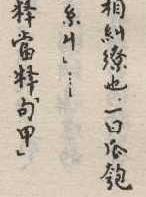 相糾繚也.一曰瓜瓠
糸丩」……
釋當釋句甲」